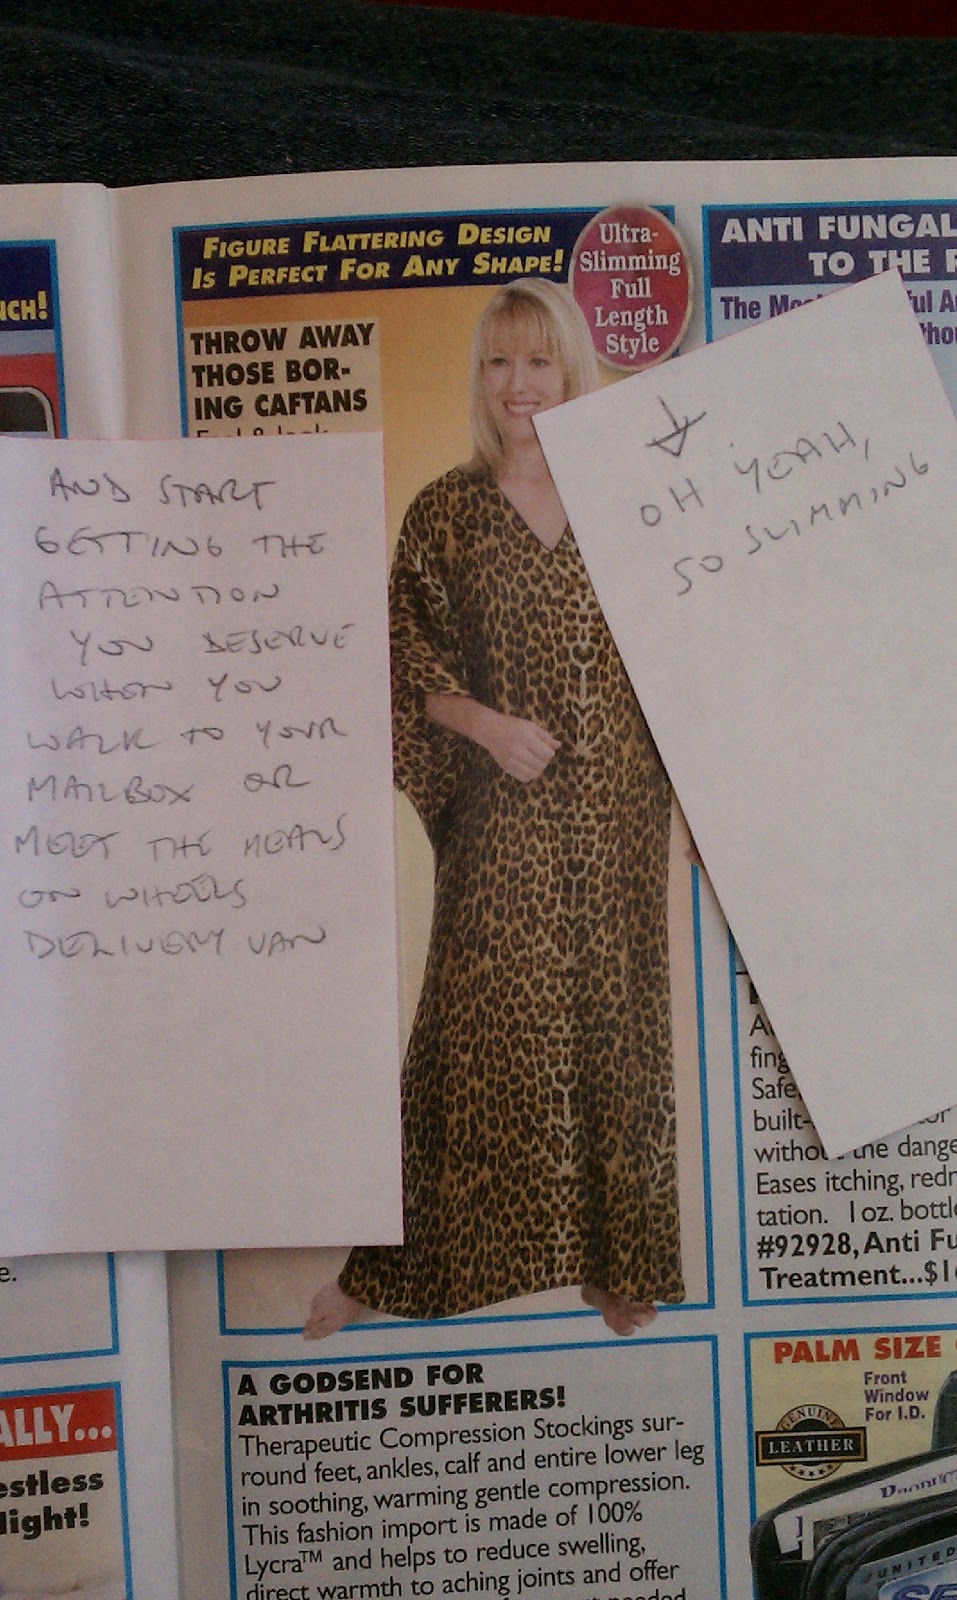 NCH!
FIGURE FLATTERING DESIGN
IS PERFECT FOR ANY SHAPE!
Ultra-
Slimming
Full
Length
Style
THROW AWAY
THOSE BOR-
ING CAFTANS
AND START
GETTING THE
ATTENTION
YOU DESERVE
WHEN YOU
WALK TO YOUR
MAILBOX OR
MEET THE MEALS
ON WHEELS
DELIVERY VAN
OH YEAH,
SO SLIMMING
ANTI FUNGAL
TO THE
The
fing
Safe
built-
without the dange
Eases itching, redn
tation. 1 oz. bottle
#92928, Anti Fu
Treatment...$1
e.
ALLY...
estless
light!
A GODSEND FOR
ARTHRITIS SUFFERERS!
Therapeutic Compression Stockings sur-
round feet, ankles, calf and entire lower leg
in soothing, warming gentle compression.
This fashion import is made of 100%
Lycra™ and helps to reduce swelling,
direct warmth to aching joints and offer
needed
PALM SIZE
Front
Window
For I.D.
GENUINE
LEATHER
UNITED